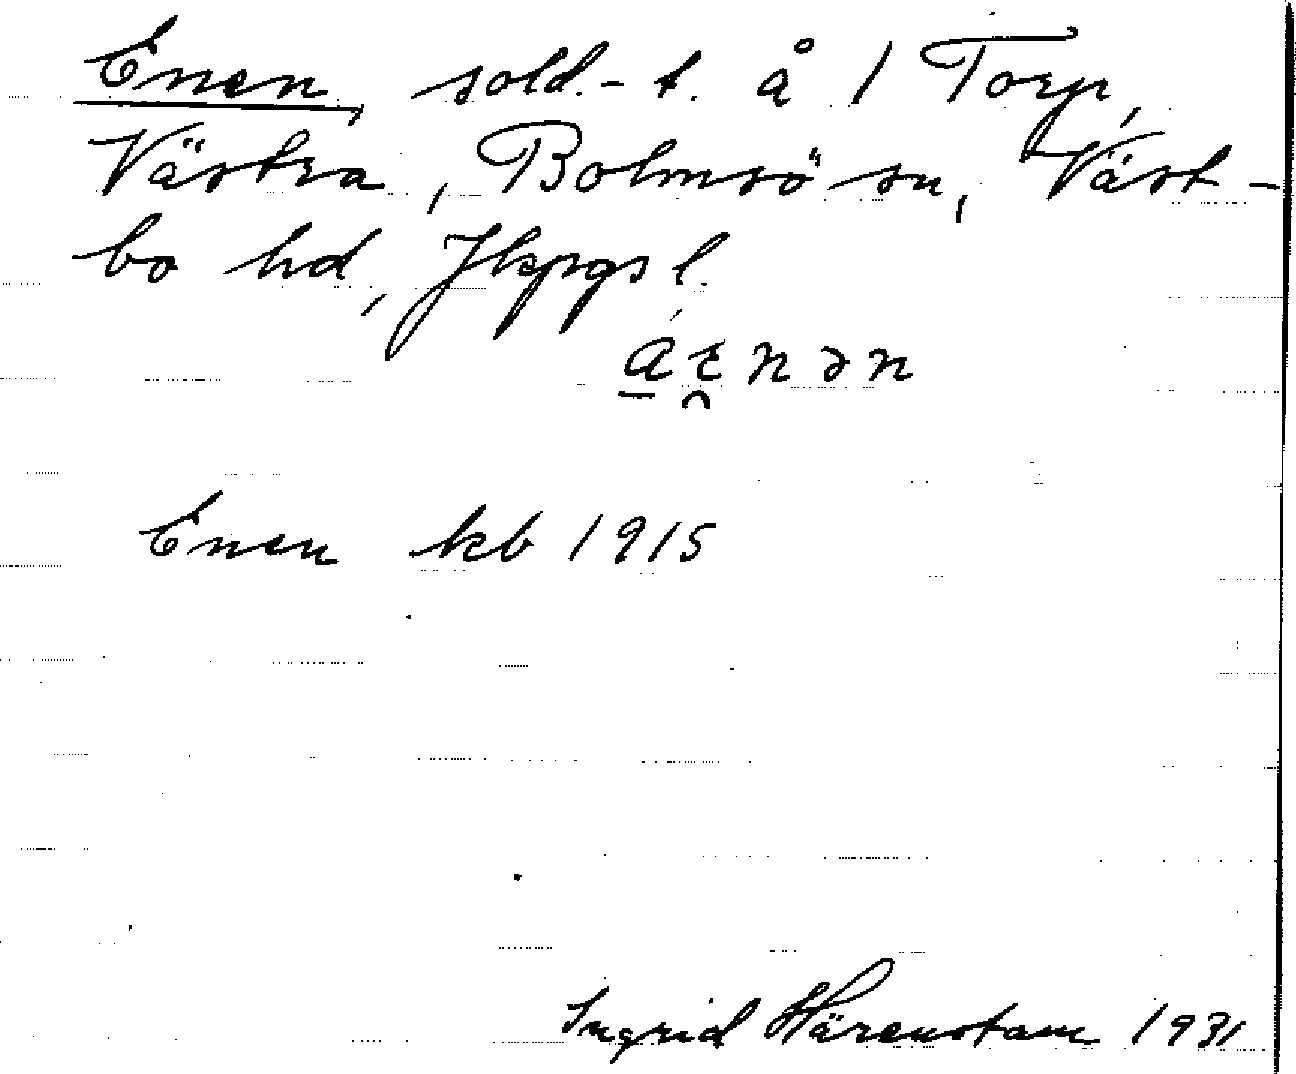 Enen, sold.-t. å 1 Torp,
Västra, Bolmsö sn, Väst-
bo hd, Jkpgs l.
a̱ɛ̯nən
Enen kb 1915
Ingrid Härenstam 1931